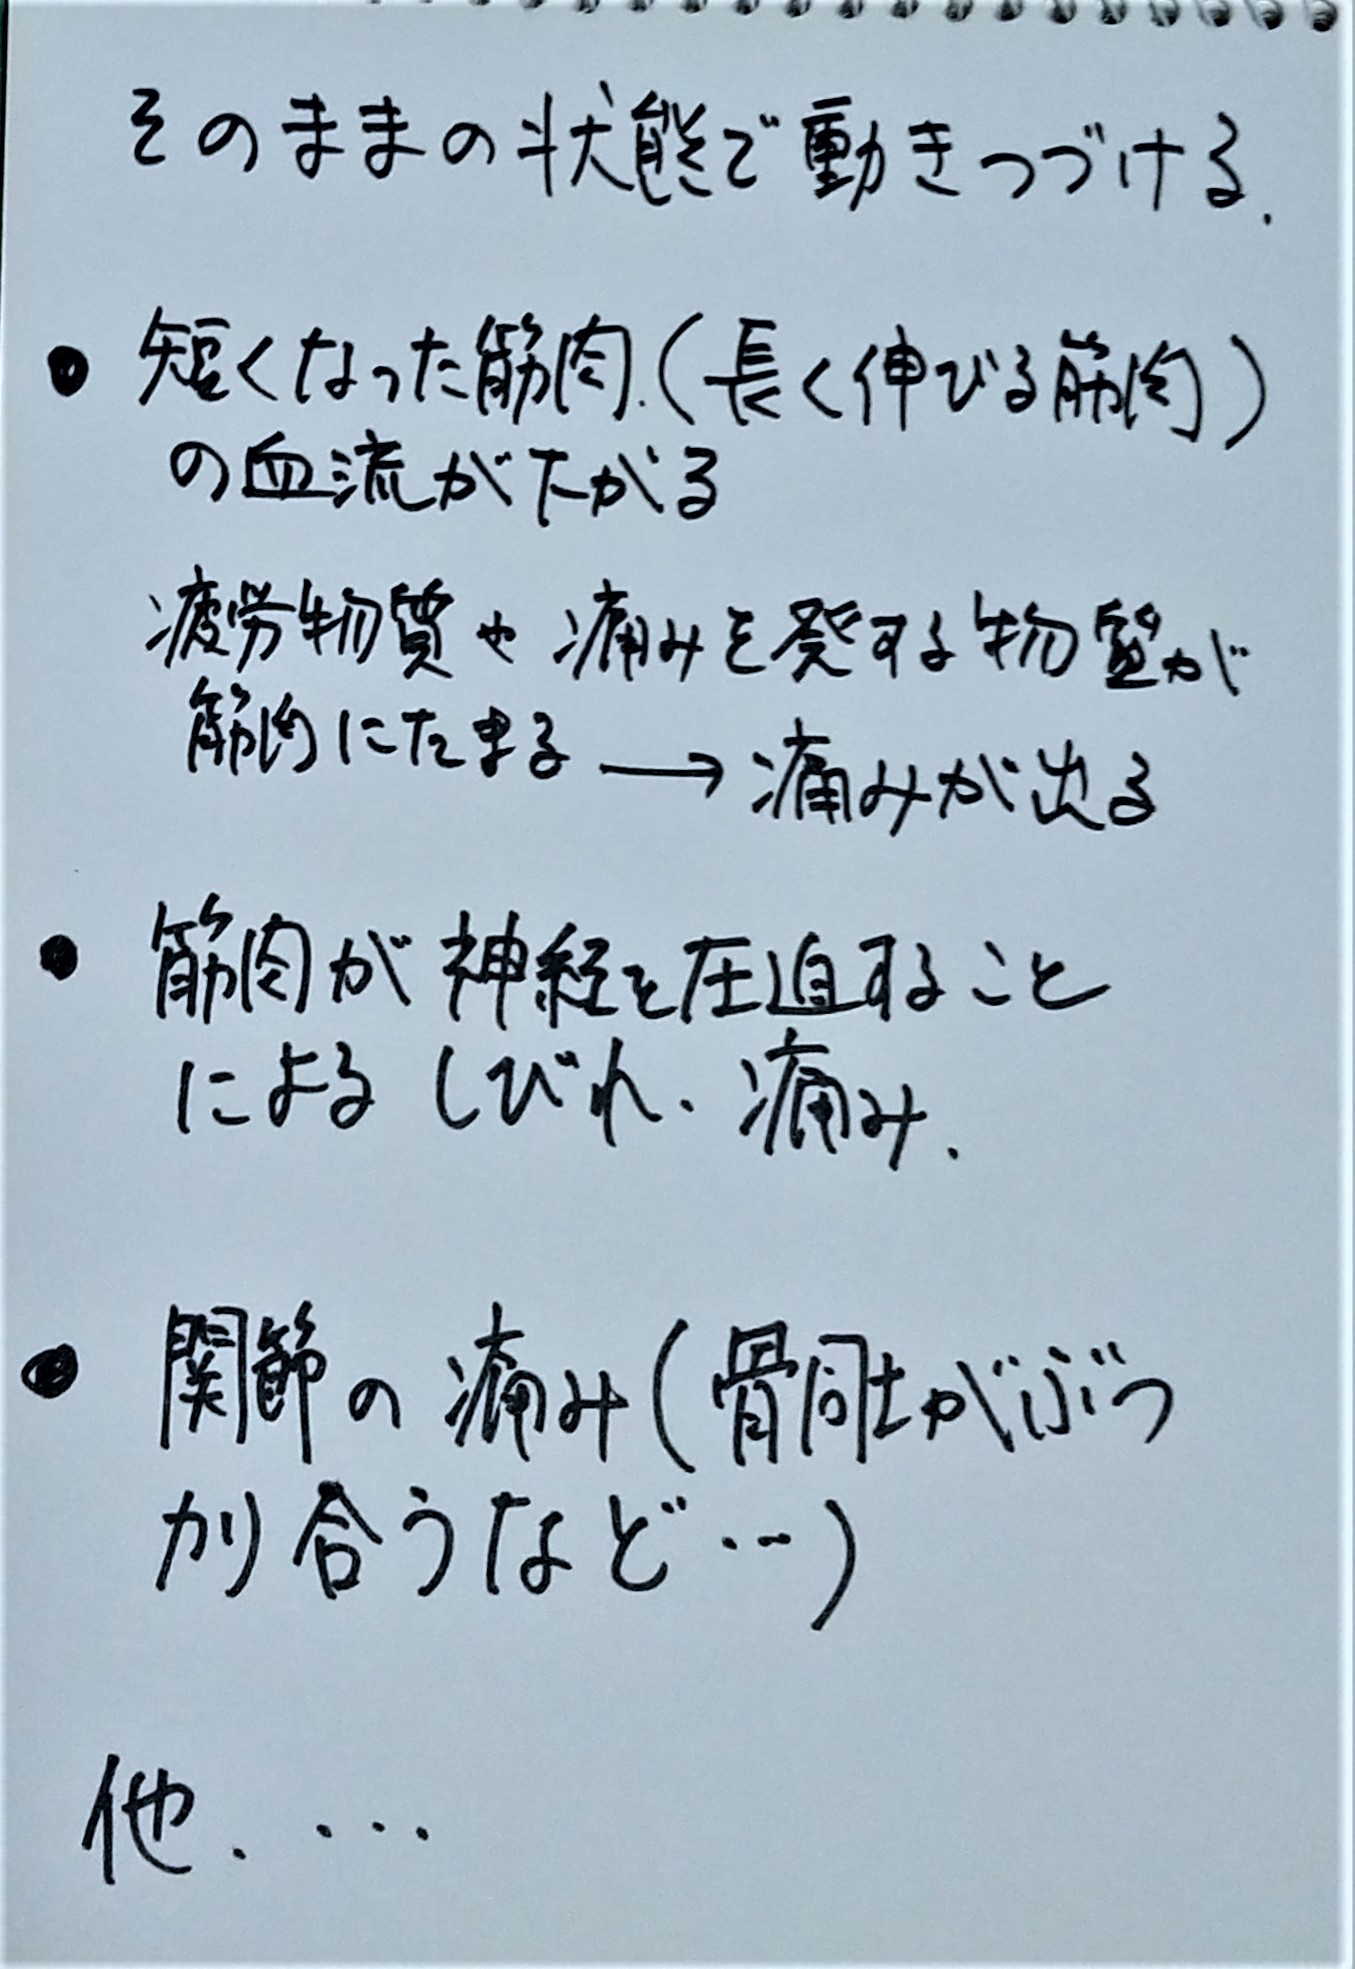 そのままの状態で動きつづける.
● 短くなった筋肉.(長く伸びる筋肉)
の血流が下がる
疲労物質や痛みを発する物質が
筋肉にたまる → 痛みが出る
● 筋肉が神経を圧迫すること
による しびれ、痛み.
● 関節の痛み(骨同士がぶつ
かり合うなど…)
他. ・・・